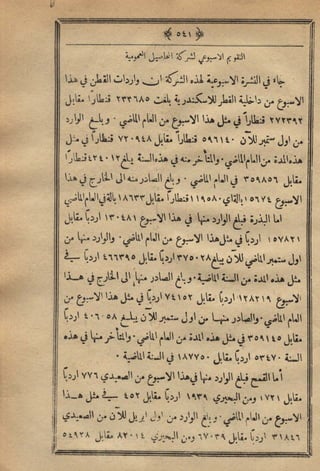 ﴿ ٥٤١ ﴾
التقويم الاسبوعي لشركة المحاصيل العمومية
جاء في النشرة الاسبوعية لهذه الشركة ان واردات القطن في هذا
الاسبوع من داخلية القطر للاسكندرية بلغت ٢٣٣٦٨٥ قنطارًا مقابل
٢٧٢٣٩٢ قنطارًا في مثل هذا الاسبوع من العام الماضي . وبلغ الوارد
من اول سبتمبر للآن ٥٩٦١٤٠ قنطارًا مقابل ٧٢٠٩٤٨ قنطارًا في مثل
هذه المدة من العام الماضي . والمتأخر منه في هذه السنة يبلغ ٤٢٤٠١٢ قنطارًا
مقابل ٣٥٩٨٥٦ في العام الماضي . وبلغ الصادر منه الى الخارج في هذا
الاسبوع ١٥٦٧٤ بالة اي ١١٩٥٨٠ قنطارًا مقابل ١٨٦٣٣ بالة في العام الماضي
اما البذرة فبلغ الوارد منها في هذا الاسبوع ١٣٠٤٨١ اردبًا مقابل
١٥٧٨٢١ اردبًا في مثل هذا الاسبوع من العام الماضي . والوارد منها من
اول سبتمبر الماضي للآن يبلغ ٣٧٥٠٢٨ اردبًا مقابل ٤٦٦٣٩٥ اردبًا في
مثل هذه المدة من السنة الماضية . وبلغ الصادر منها الى الخارج في هذا
الاسبوع ١٢٨٢١٩ اردبًا مقابل ٧٤١٥٢ اردبًا في مثل هذا الاسبوع من
العام الماضي . والصادر منها من اول سبتمبر للآن يبلغ ٤٠٦٠٥٨ اردبًا
مقابل ٣٥٩١٤٥ في مثل هذه المدة من العام الماضي . والمتأخر منها في هذه
السنة ٥٣٤٧٠ اردبًا مقابل ١٨٧٧٥٠ في السنة الماضية .
أما القمح فبلغ الوارد منها في هذا الاسبوع من الصعيدي ٧٧٦ اردبًا
مقابل ١٧٢١ ومن البحيري ١٩٣٩ اردبًا مقابل ٤٥٢ في مثل هذا
الاسبوع من العام الماضي . وبلغ الوارد من اول ابريل للآن من الصعيدي
٣١٨٤٦ اردبًا مقابل ٦٧٠٣٩ ومن البحيري ٨٢٠١٤ مقابل ٥٤٩٢٨